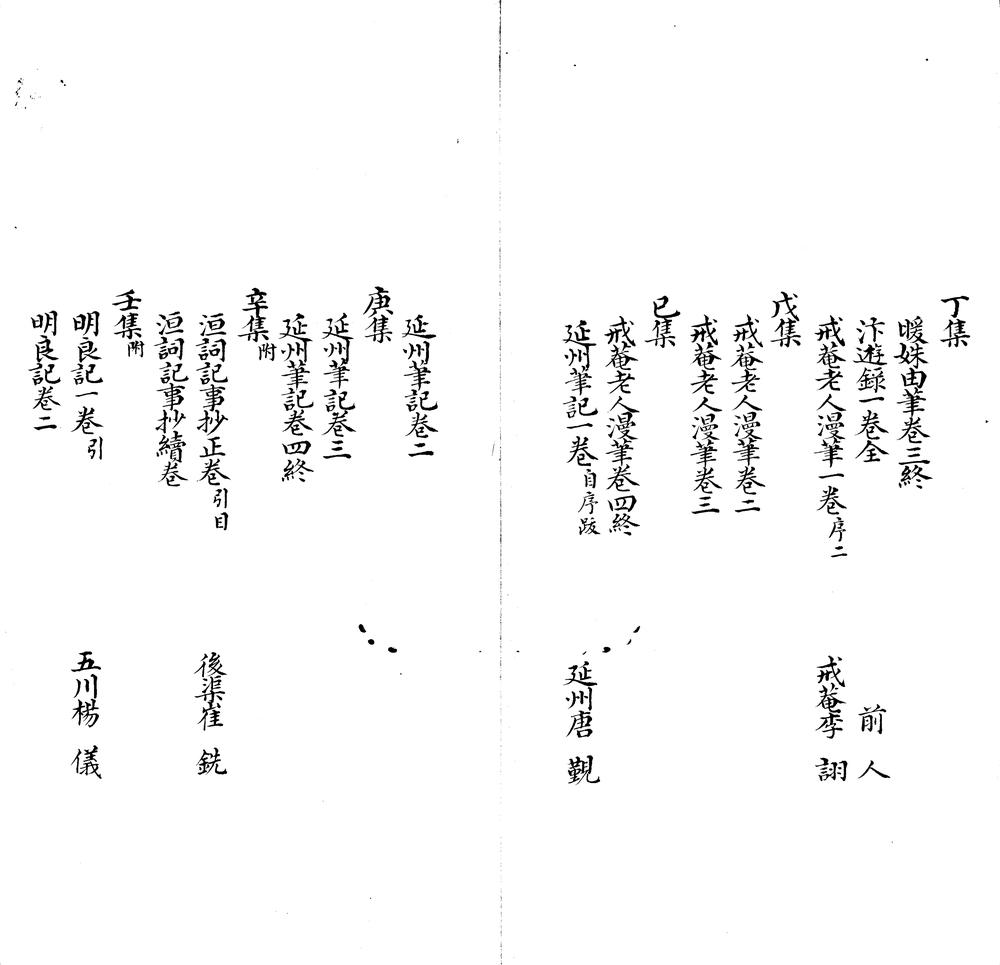 丁集
暖姝由筆卷三終
汴遊錄一卷全 前人
戒菴老人漫筆一卷 序二 戒菴李詡
戊集
戒菴老人漫筆卷二
戒菴老人漫筆卷三
已集
戒菴老人漫筆卷四終
延州筆記一卷 自序跋 延州唐覲
延州筆記卷二
庚集
延州筆記卷三
延州筆記卷四終
辛集附
洹詞記事抄正卷 引目 後渠崔銑
洹詞記事抄續卷
壬集附
明良記一卷 引 五川楊儀
明良記卷二